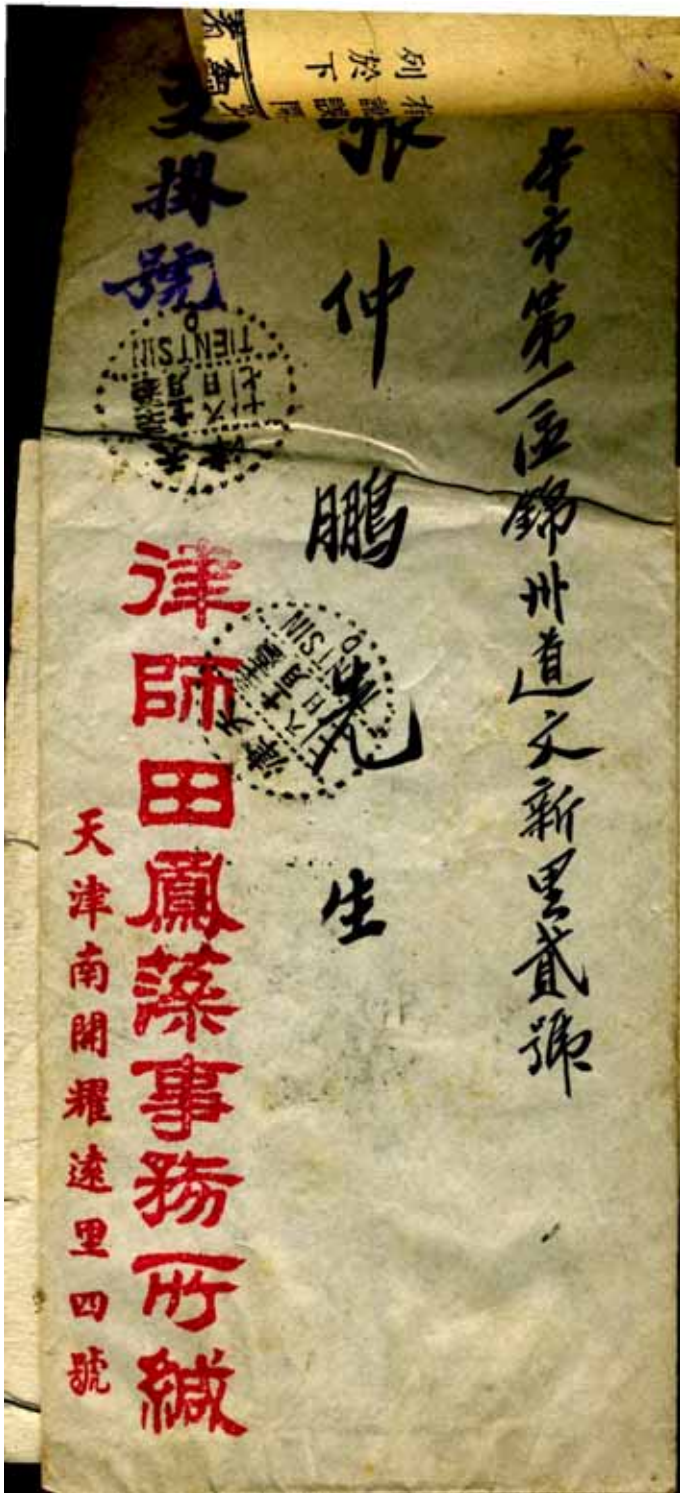 本市第一區錦州道文新里貳號
張仲鵬先生
掛號
律師田鳳藻事務所緘
天津南開耀遠里四號
列於下
TIENTSIN